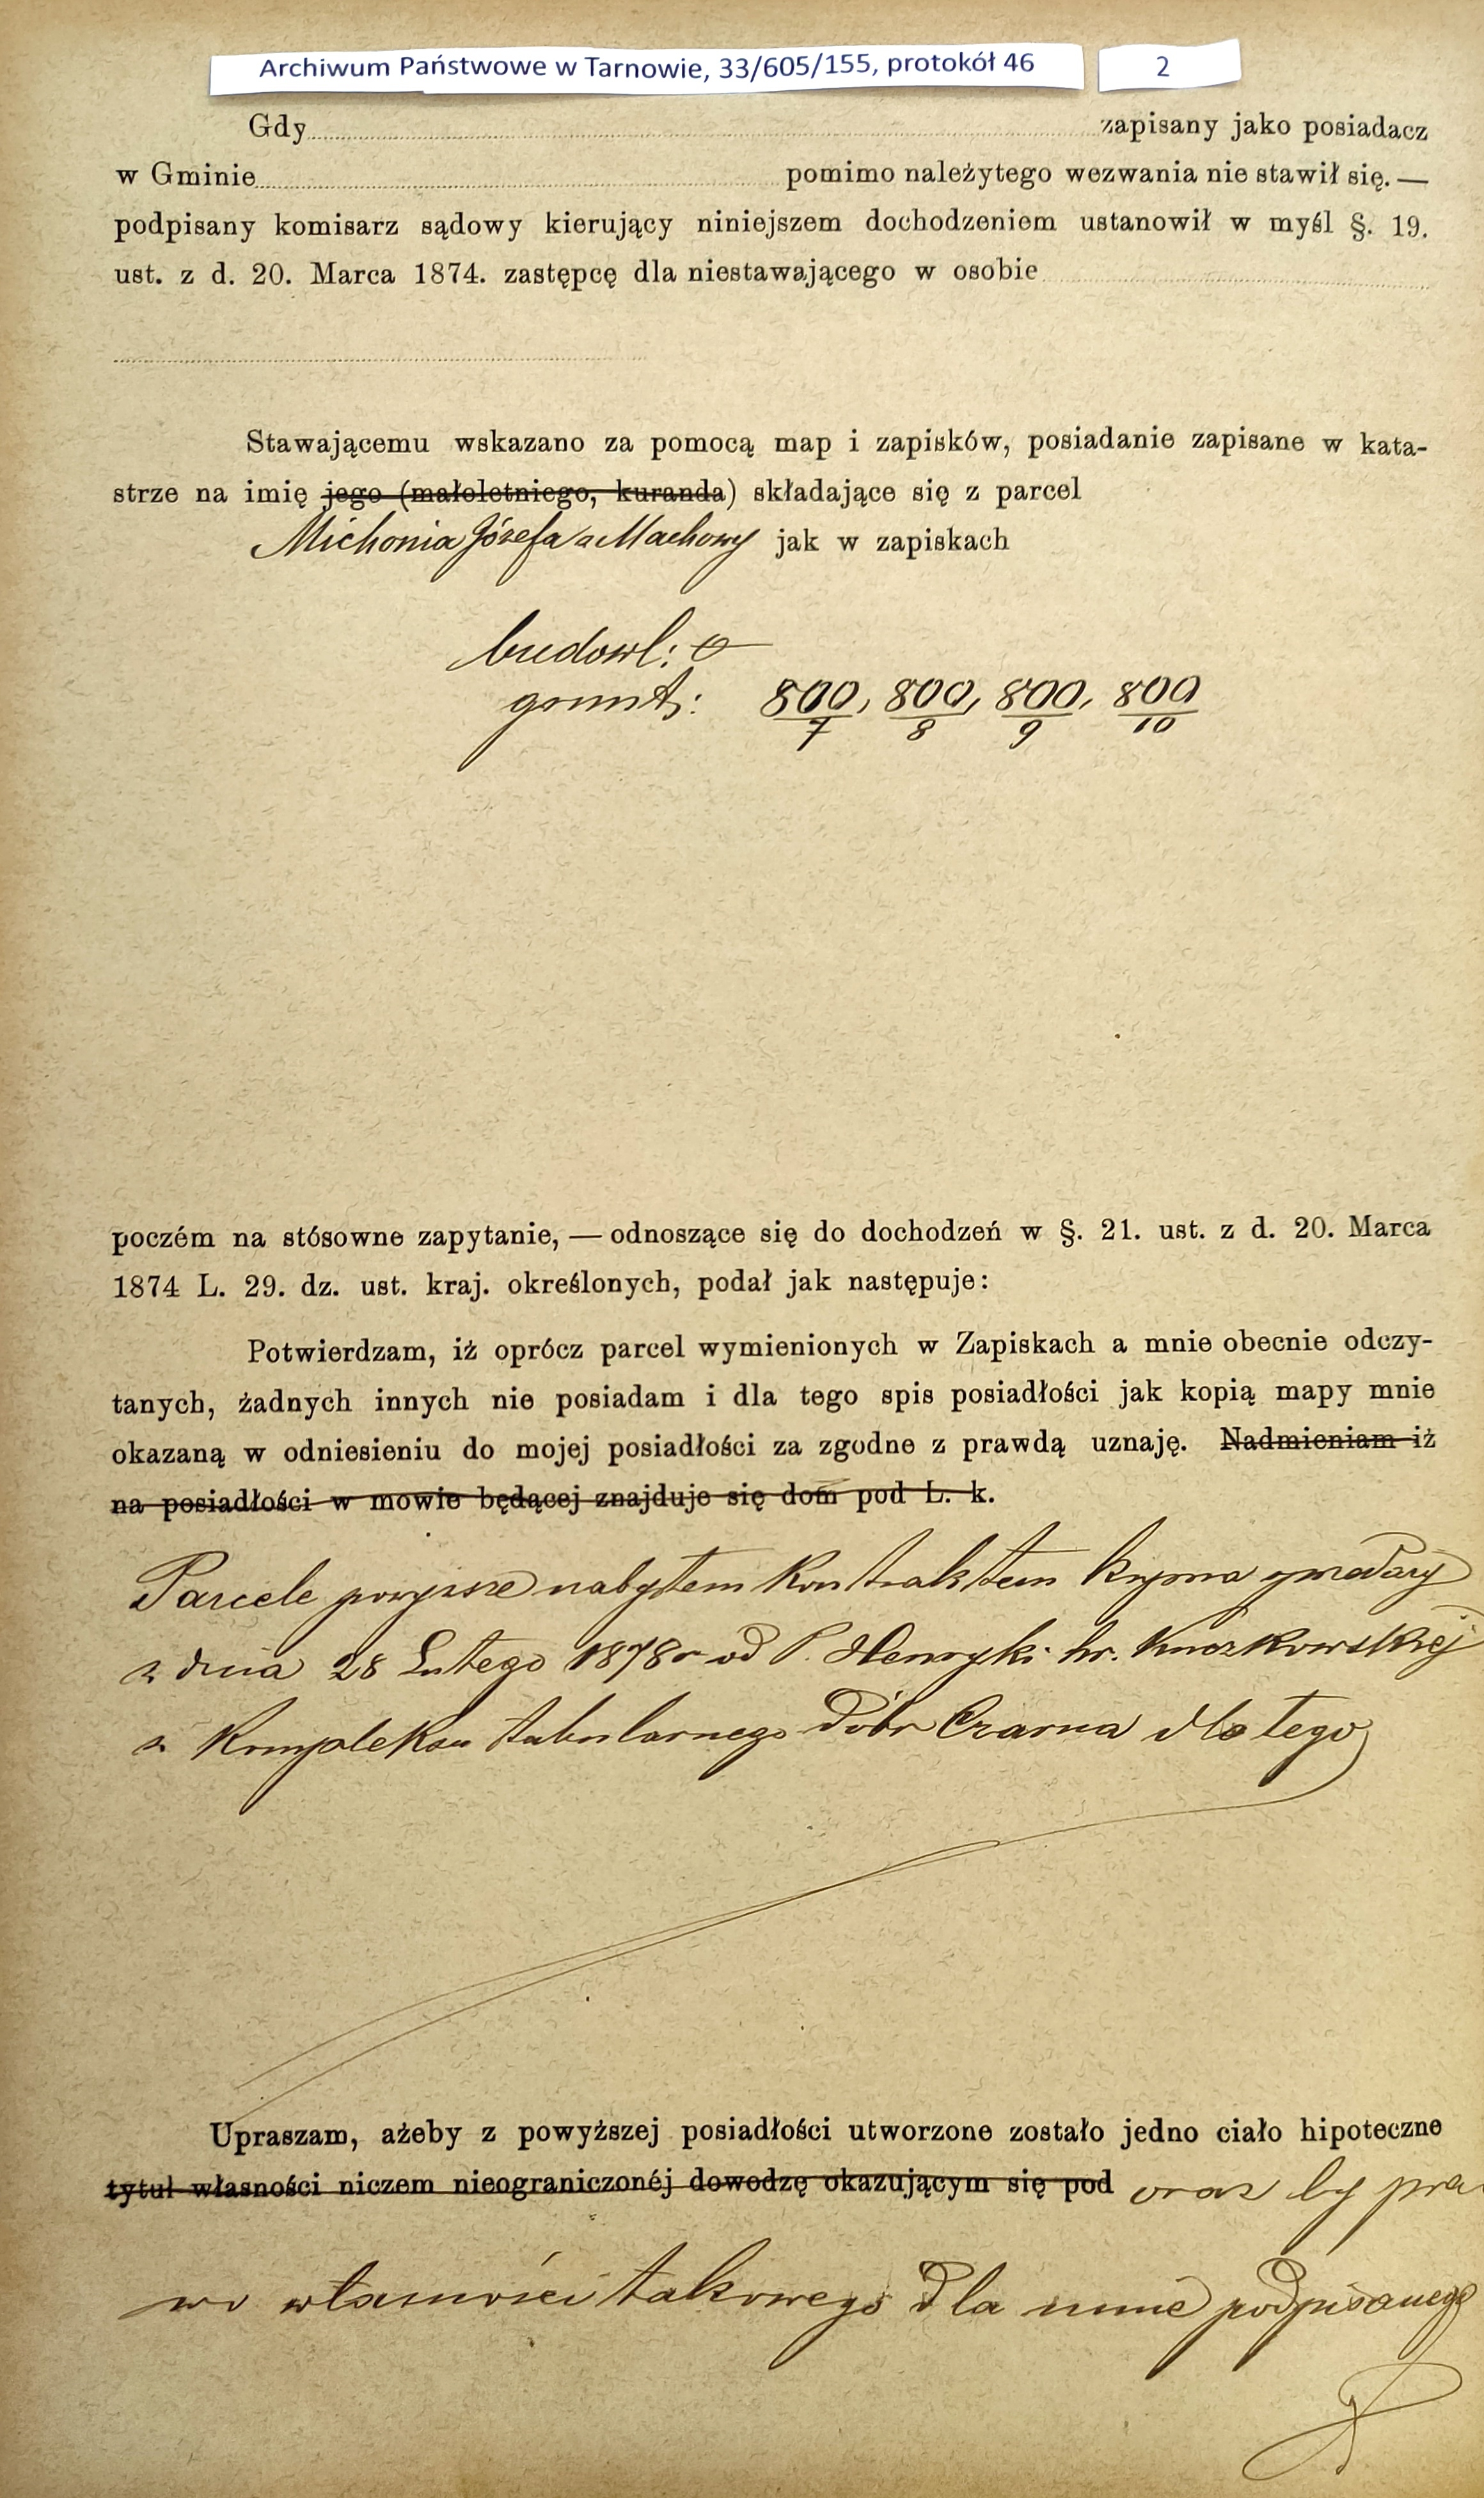 Archiwum Państwowe w Tarnowie, 33/605/155, protokół 46
2
Gdy zapisany jako posiadacz
w Gminie pomimo należytego wezwania nie stawił się. —
podpisany komisarz sądowy kierujący niniejszem dochodzeniem ustanowił w myśl §. 19.
ust. z d. 20. Marca 1874. zastępcę dla niestawającego w osobie
Stawającemu wskazano za pomocą map i zapisków, posiadanie zapisane w kata-
strze na imię jego (małoletniego, kuranda) składające się z parcel
Michonia Józefa z Machowy jak w zapiskach
budowl: 0
grunt: 800/7, 800/8, 800/9, 800/10
poczém na stósowne zapytanie, — odnoszące się do dochodzeń w §. 21. ust. z d. 20. Marca
1874 L. 29. dz. ust. kraj. określonych, podał jak następuje:
Potwierdzam, iż oprócz parcel wymienionych w Zapiskach a mnie obecnie odczy-
tanych, żadnych innych nie posiadam i dla tego spis posiadłości jak kopią mapy mnie
okazaną w odniesieniu do mojej posiadłości za zgodne z prawdą uznaję. Nadmieniam iż
na posiadłości w mowie będącej znajduje się dom pod L. k.
Parcele powyższe nabyłem kontraktem kupna sprzedaży
z dnia 28 Lutego 1878 r od P. Henryki hr. Kuczkowskiej
z kompleksu tabularnego dóbr Czarna dla tego
Upraszam, ażeby z powyższej posiadłości utworzone zostało jedno ciało hipoteczne
tytuł własności niczem nieograniczonéj dowodzę okazującym się pod oraz by pra
wo własności takowego dla mnie podpisanego